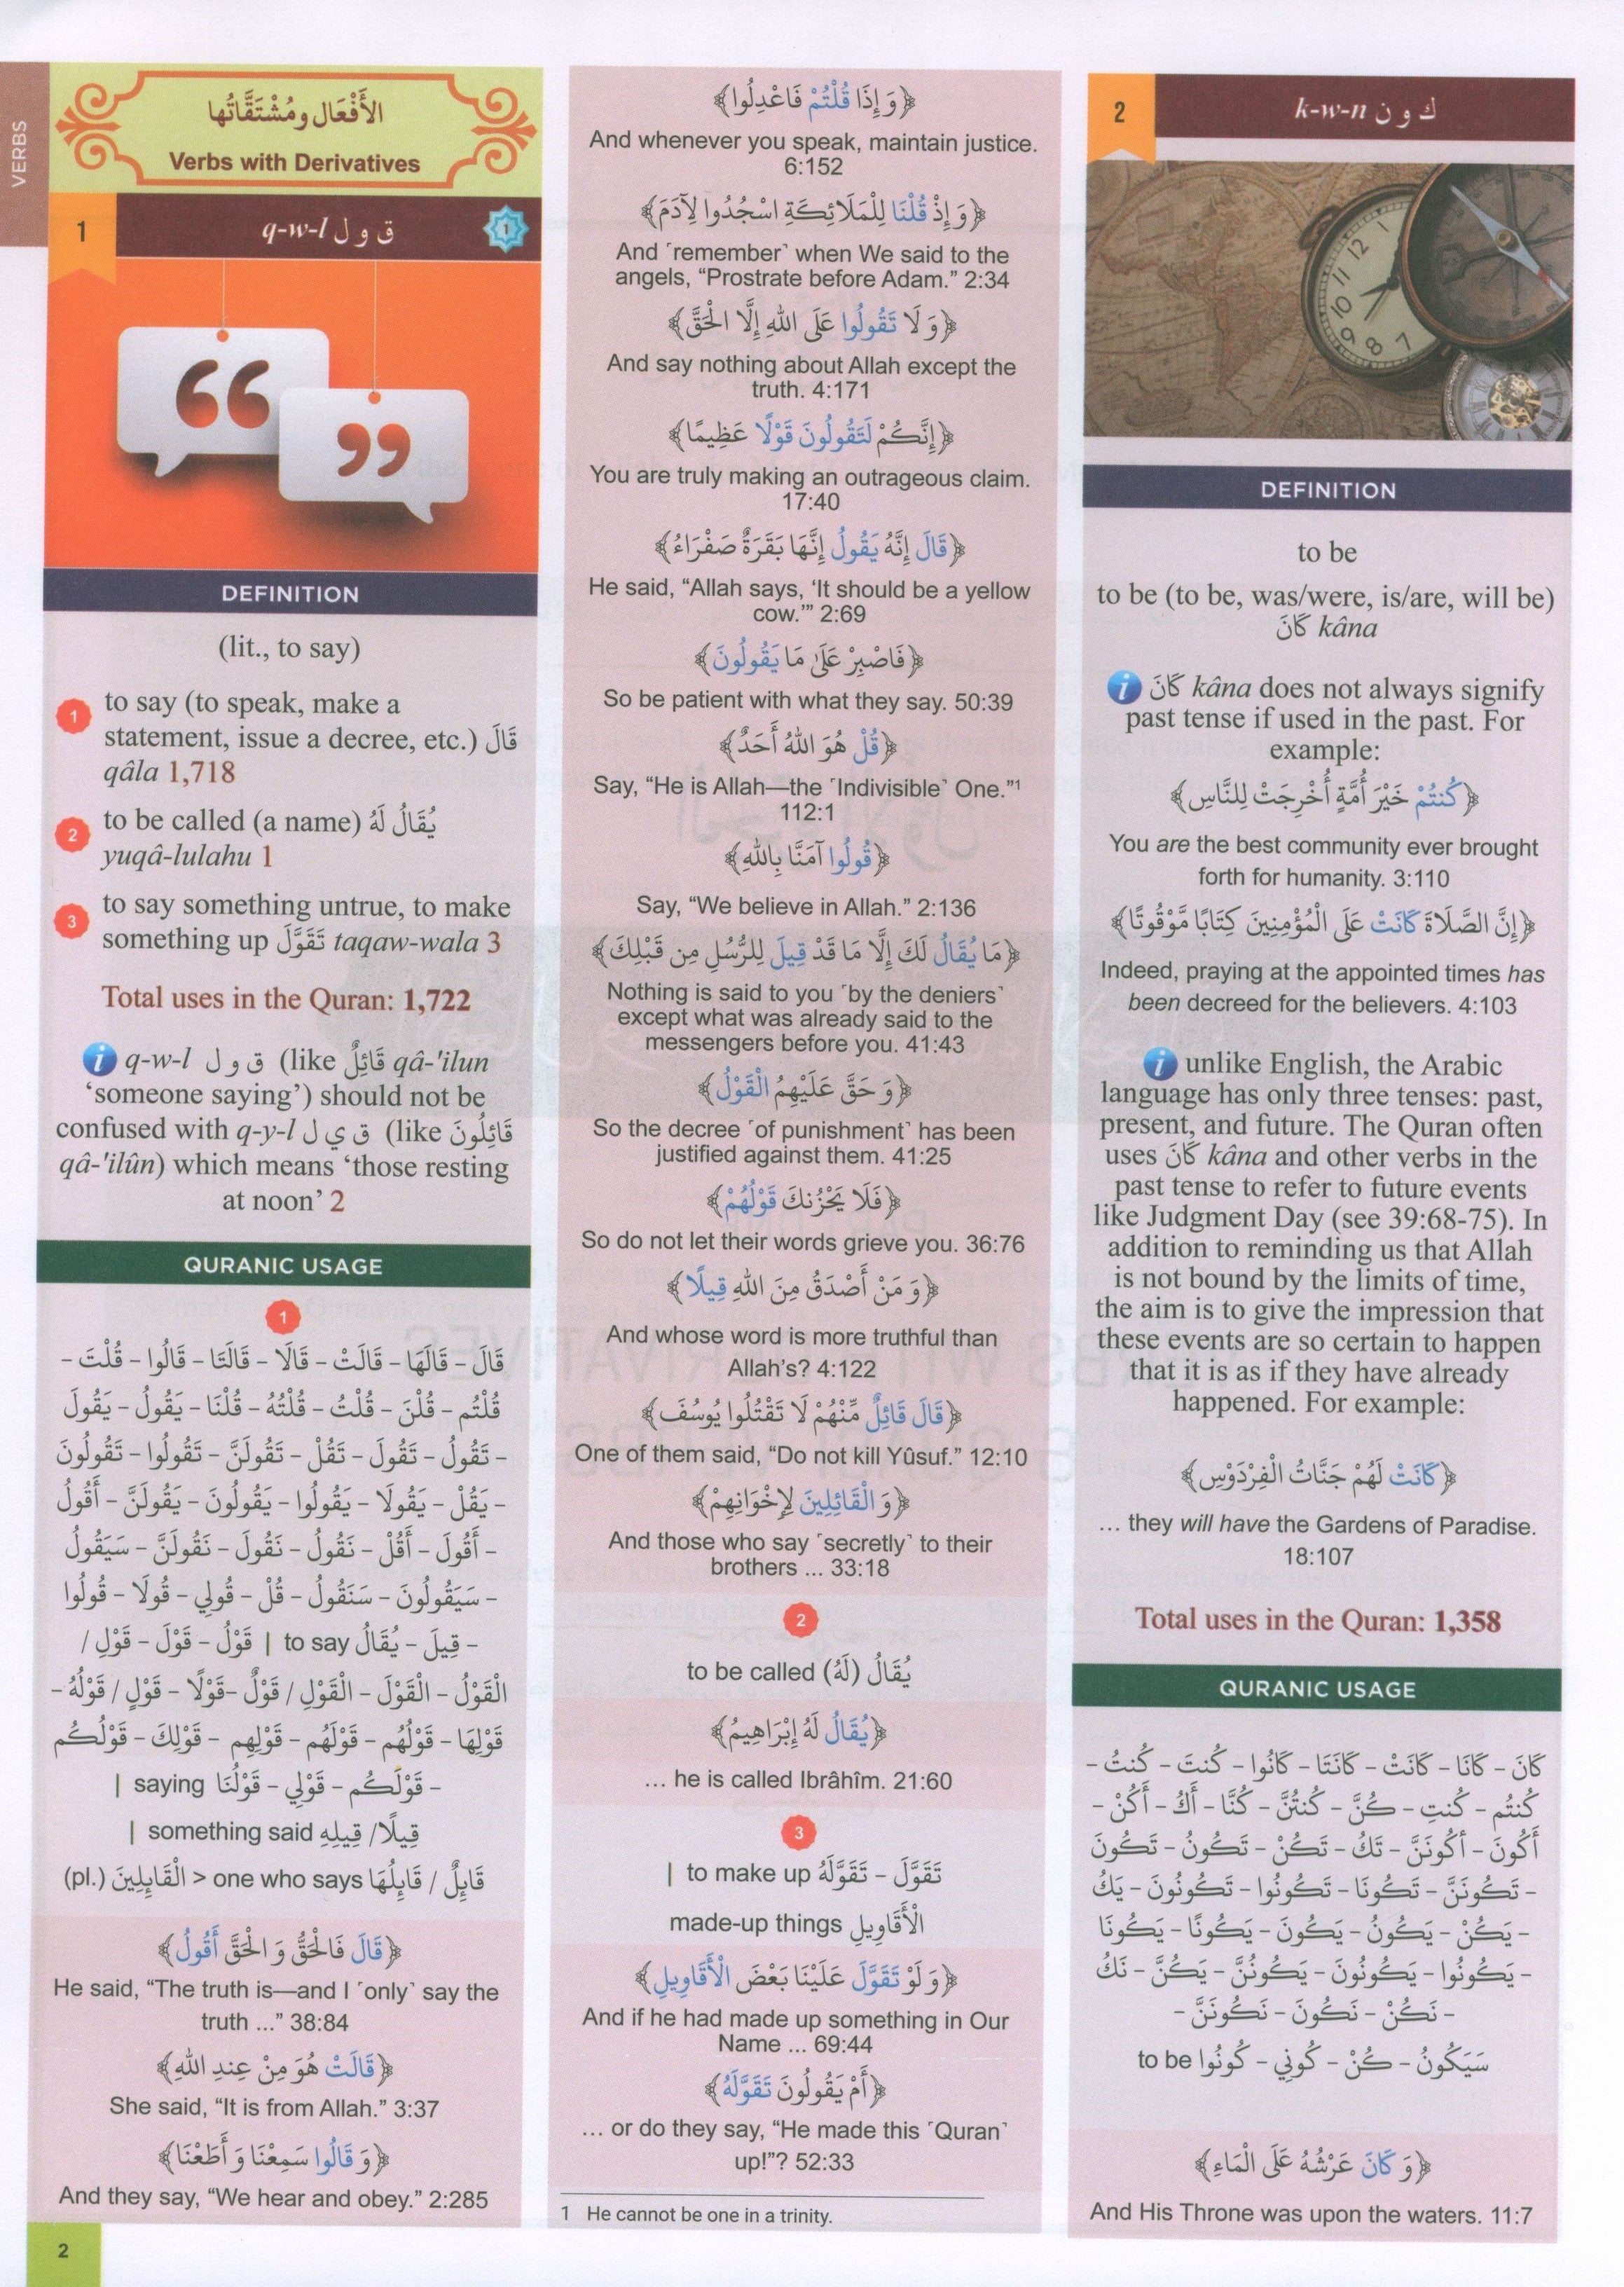 VERBS
الأَفْعَال ومُشْتَقَّاتُها
Verbs with Derivatives
1
ق و ل q-w-l
1
DEFINITION
(lit., to say)
1 to say (to speak, make a
statement, issue a decree, etc.) قَالَ
qâla 1,718
2 to be called (a name) يُقَالُ لَهُ
yuqâ-lulahu 1
3 to say something untrue, to make
something up تَقَوَّلَ taqaw-wala 3
Total uses in the Quran: 1,722
i q-w-l ق و ل (like قَائِلٌ qâ-'ilun
‘someone saying’) should not be
confused with q-y-l ق ي ل (like قَائِلُونَ
qâ-'ilûn) which means ‘those resting
at noon’ 2
QURANIC USAGE
1
قَالَ – قَالَهَا – قَالَتْ – قَالَا – قَالَتَا – قَالُوا – قُلْتَ –
قُلْتُم – قُلْنَ – قُلْتُ – قُلْتُهُ – قُلْنَا – يَقُولُ – يَقُولَ
– تَقُولُ – تَقُولَ – تَقُلْ – تَقُولَنَّ – تَقُولُوا – تَقُولُونَ
– يَقُلْ – يَقُولَا – يَقُولُوا – يَقُولُونَ – يَقُولَنَّ – أَقُولُ
– أَقُولَ – أَقُلْ – نَقُولُ – نَقُولَ – نَقُولَنَّ – سَيَقُولُ
– سَيَقُولُونَ – سَنَقُولُ – قُلْ – قُولِي – قُولَا – قُولُوا
– قِيلَ – يُقَالُ to say | قَوْلُ – قَوْلَ – قَوْلِ /
الْقَوْلُ – الْقَوْلَ – الْقَوْلِ / قَوْلٌ –قَوْلًا – قَوْلٍ / قَوْلُهُ –
قَوْلِهَا – قَوْلُهُم – قَوْلَهُم – قَوْلِهِم – قَوْلِكَ – قَوْلُكُم
– قَوْلَكُم – قَوْلِي – قَوْلُنَا saying |
قِيلًا/ قِيلِهِ something said |
قَائِلٌ / قَائِلُهَا one who says < الْقَائِلِينَ (pl.)
﴿قَالَ فَالْحَقُّ وَ الْحَقَّ أَقُولُ﴾
He said, “The truth is—and I ˹only˺ say the
truth ...” 38:84
﴿قَالَتْ هُوَ مِنْ عِندِ اللهِ﴾
She said, “It is from Allah.” 3:37
﴿وَ قَالُوا سَمِعْنَا وَ أَطَعْنَا﴾
And they say, “We hear and obey.” 2:285
2
﴿وَ إِذَا قُلْتُمْ فَاعْدِلُوا﴾
And whenever you speak, maintain justice.
6:152
﴿وَ إِذْ قُلْنَا لِلْمَلَائِكَةِ اسْجُدُوا لِآدَمَ﴾
And ˹remember˺ when We said to the
angels, “Prostrate before Adam.” 2:34
﴿وَ لَا تَقُولُوا عَلَى اللهِ إِلَّا الْحَقَّ﴾
And say nothing about Allah except the
truth. 4:171
﴿إِنَّكُمْ لَتَقُولُونَ قَوْلًا عَظِيمًا﴾
You are truly making an outrageous claim.
17:40
﴿قَالَ إِنَّهُ يَقُولُ إِنَّهَا بَقَرَةٌ صَفْرَاءُ﴾
He said, “Allah says, ‘It should be a yellow
cow.’” 2:69
﴿فَاصْبِرْ عَلَىٰ مَا يَقُولُونَ﴾
So be patient with what they say. 50:39
﴿قُلْ هُوَ اللهُ أَحَدٌ﴾
Say, “He is Allah—the ˹Indivisible˺ One.”1
112:1
﴿قُولُوا آمَنَّا بِاللهِ﴾
Say, “We believe in Allah.” 2:136
﴿مَا يُقَالُ لَكَ إِلَّا مَا قَدْ قِيلَ لِلرُّسُلِ مِن قَبْلِكَ﴾
Nothing is said to you ˹by the deniers˺
except what was already said to the
messengers before you. 41:43
﴿وَ حَقَّ عَلَيْهِمُ الْقَوْلُ﴾
So the decree ˹of punishment˺ has been
justified against them. 41:25
﴿فَلَا يَحْزُنكَ قَوْلُهُمْ﴾
So do not let their words grieve you. 36:76
﴿وَ مَنْ أَصْدَقُ مِنَ اللهِ قِيلًا﴾
And whose word is more truthful than
Allah’s? 4:122
﴿قَالَ قَائِلٌ مِّنْهُمْ لَا تَقْتُلُوا يُوسُفَ﴾
One of them said, “Do not kill Yûsuf.” 12:10
﴿وَ الْقَائِلِينَ لِإِخْوَانِهِمْ﴾
And those who say ˹secretly˺ to their
brothers ... 33:18
2
يُقَالُ (لَهُ) to be called
﴿يُقَالُ لَهُ إِبْرَاهِيمُ﴾
... he is called Ibrâhîm. 21:60
3
تَقَوَّلَ – تَقَوَّلَهُ to make up |
الْأَقَاوِيلِ made-up things
﴿وَ لَوْ تَقَوَّلَ عَلَيْنَا بَعْضَ الْأَقَاوِيلِ﴾
And if he had made up something in Our
Name ... 69:44
﴿أَمْ يَقُولُونَ تَقَوَّلَهُ﴾
... or do they say, “He made this ˹Quran˺
up!”? 52:33
1 He cannot be one in a trinity.
2
ك و ن k-w-n
DEFINITION
to be
to be (to be, was/were, is/are, will be)
كَانَ kâna
i كَانَ kâna does not always signify
past tense if used in the past. For
example:
﴿كُنتُمْ خَيْرَ أُمَّةٍ أُخْرِجَتْ لِلنَّاسِ﴾
You are the best community ever brought
forth for humanity. 3:110
﴿إِنَّ الصَّلَاةَ كَانَتْ عَلَى الْمُؤْمِنِينَ كِتَابًا مَّوْقُوتًا﴾
Indeed, praying at the appointed times has
been decreed for the believers. 4:103
i unlike English, the Arabic
language has only three tenses: past,
present, and future. The Quran often
uses كَانَ kâna and other verbs in the
past tense to refer to future events
like Judgment Day (see 39:68-75). In
addition to reminding us that Allah
is not bound by the limits of time,
the aim is to give the impression that
these events are so certain to happen
that it is as if they have already
happened. For example:
﴿كَانَتْ لَهُمْ جَنَّاتُ الْفِرْدَوْسِ﴾
... they will have the Gardens of Paradise.
18:107
Total uses in the Quran: 1,358
QURANIC USAGE
كَانَ – كَانَا – كَانَتْ – كَانَتَا – كَانُوا – كُنتَ – كُنتُ –
كُنتُم – كُنتِ – كُنَّ – كُنتُنَّ – كُنَّا – أَكُ – أَكُنْ –
أَكُونَ – أَكُونَنَّ – تَكُ – تَكُنْ – تَكُونُ – تَكُونَ
– تَكُونَنَّ – تَكُونَا – تَكُونُوا – تَكُونُونَ – يَكُ
– يَكُنْ – يَكُونُ – يَكُونَ – يَكُونًا – يَكُونَا
– يَكُونُوا – يَكُونُونَ – يَكُونُنَّ – يَكُنَّ – نَكُ
– نَكُنْ – نَكُونَ – نَكُونَنَّ –
سَيَكُونُ – كُنْ – كُونِي – كُونُوا to be
﴿وَ كَانَ عَرْشُهُ عَلَى الْمَاءِ﴾
And His Throne was upon the waters. 11:7